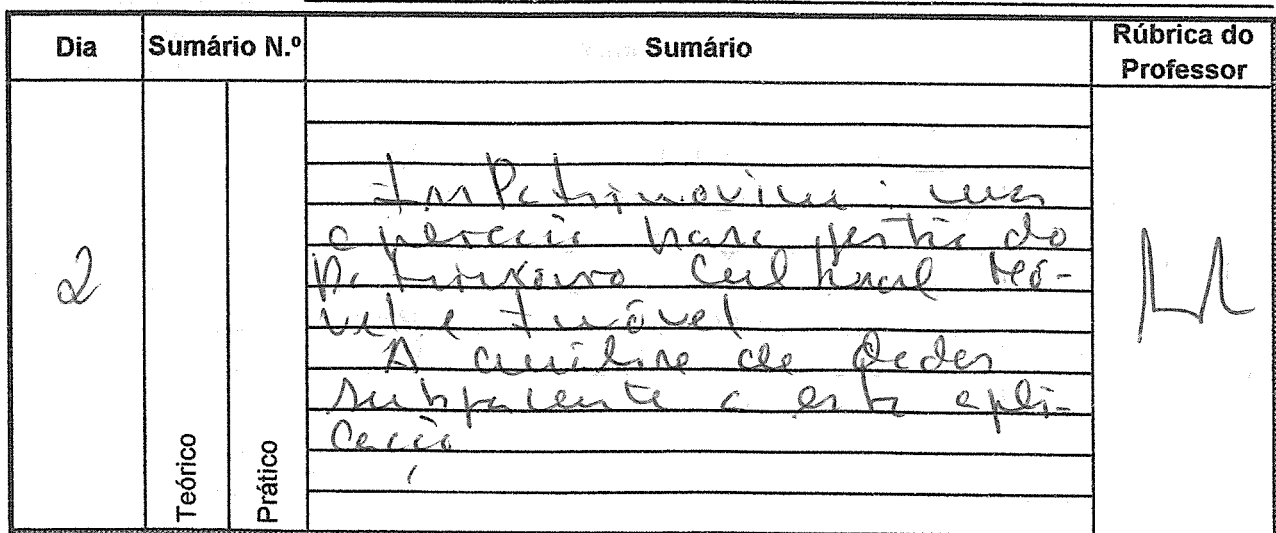 Dia
Sumário N.º
Sumário
Rúbrica do
Professor
2
In Patrimonium: uma
aplicação para gestão do
Património Cultural Mó-
vel e Imóvel
A análise de dados
subjacente a esta apli-
cação
Teórico
Prático